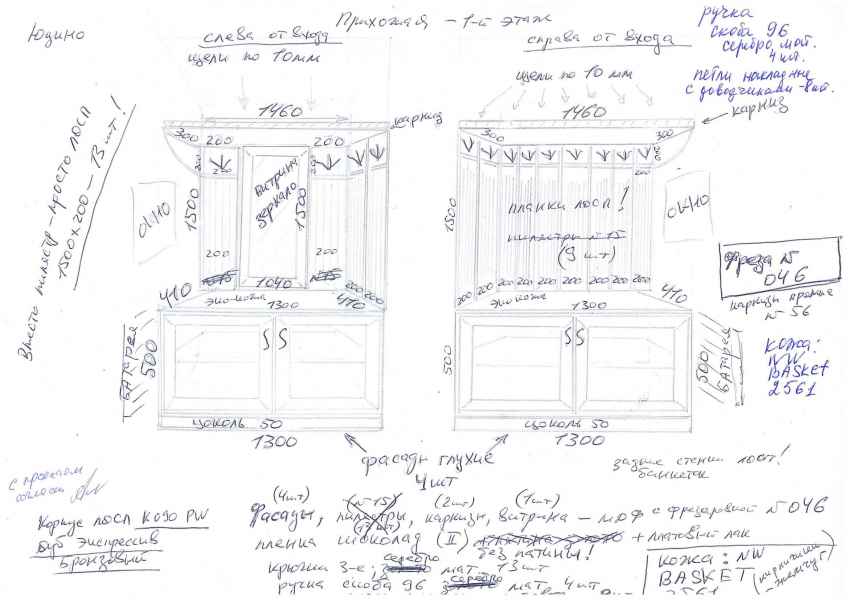 Юдино
Прихожая - 1-й этаж
слева от входа
щели по 10мм
справа от входа
щели по 10 мм
ручка
скоба 96
серебро мат.
4 шт.
петли накладные
с доводчиками - 8шт.
карниз
карниз
1460
300
200
200
200
200
1500
1500
витрина
зеркало
окно
200
200
№15
№15
1040
200 200
410
410
эко-кожа
1300
Батарея
500
цоколь 50
1300
Вместо пилястр - просто ЛДСП
1500 x 200 - 13 шт!
1460
300
300
200
1500
планки ЛДСП!
пилястры №15
(9 шт)
окно
200 200 200 200 200 200 200 200 200
эко кожа
1300
410
500
500
Батарея
цоколь 50
1300
Фреза №
046
карнизы прямые
№ 56
кожа:
NW
BASKET
2561
фасады глухие
4 шт
задние стенки ЛДСП!
банкеток
с проектом
согласен
Корпус ЛДСП K090 PW
Дуб Экспрессив
Бронзовый
(4шт) (№15) (2шт) (1шт)
Фасады, пилястры, карнизы, витрина - МДФ с фрезеровкой №046
(13 шт)
пленка шоколад (II) + матовый лак
без патины!
серебро
крючки 3-е, мат. 13шт
серебро
ручка скоба 96 мат. 4 шт
кожа: NW
BASKET
2561